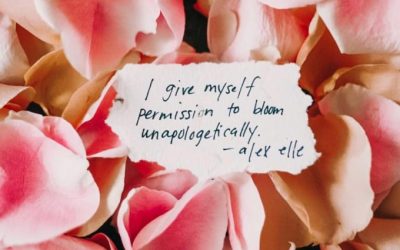 I give myself
permission to bloom
unapologetically.
- alex elle